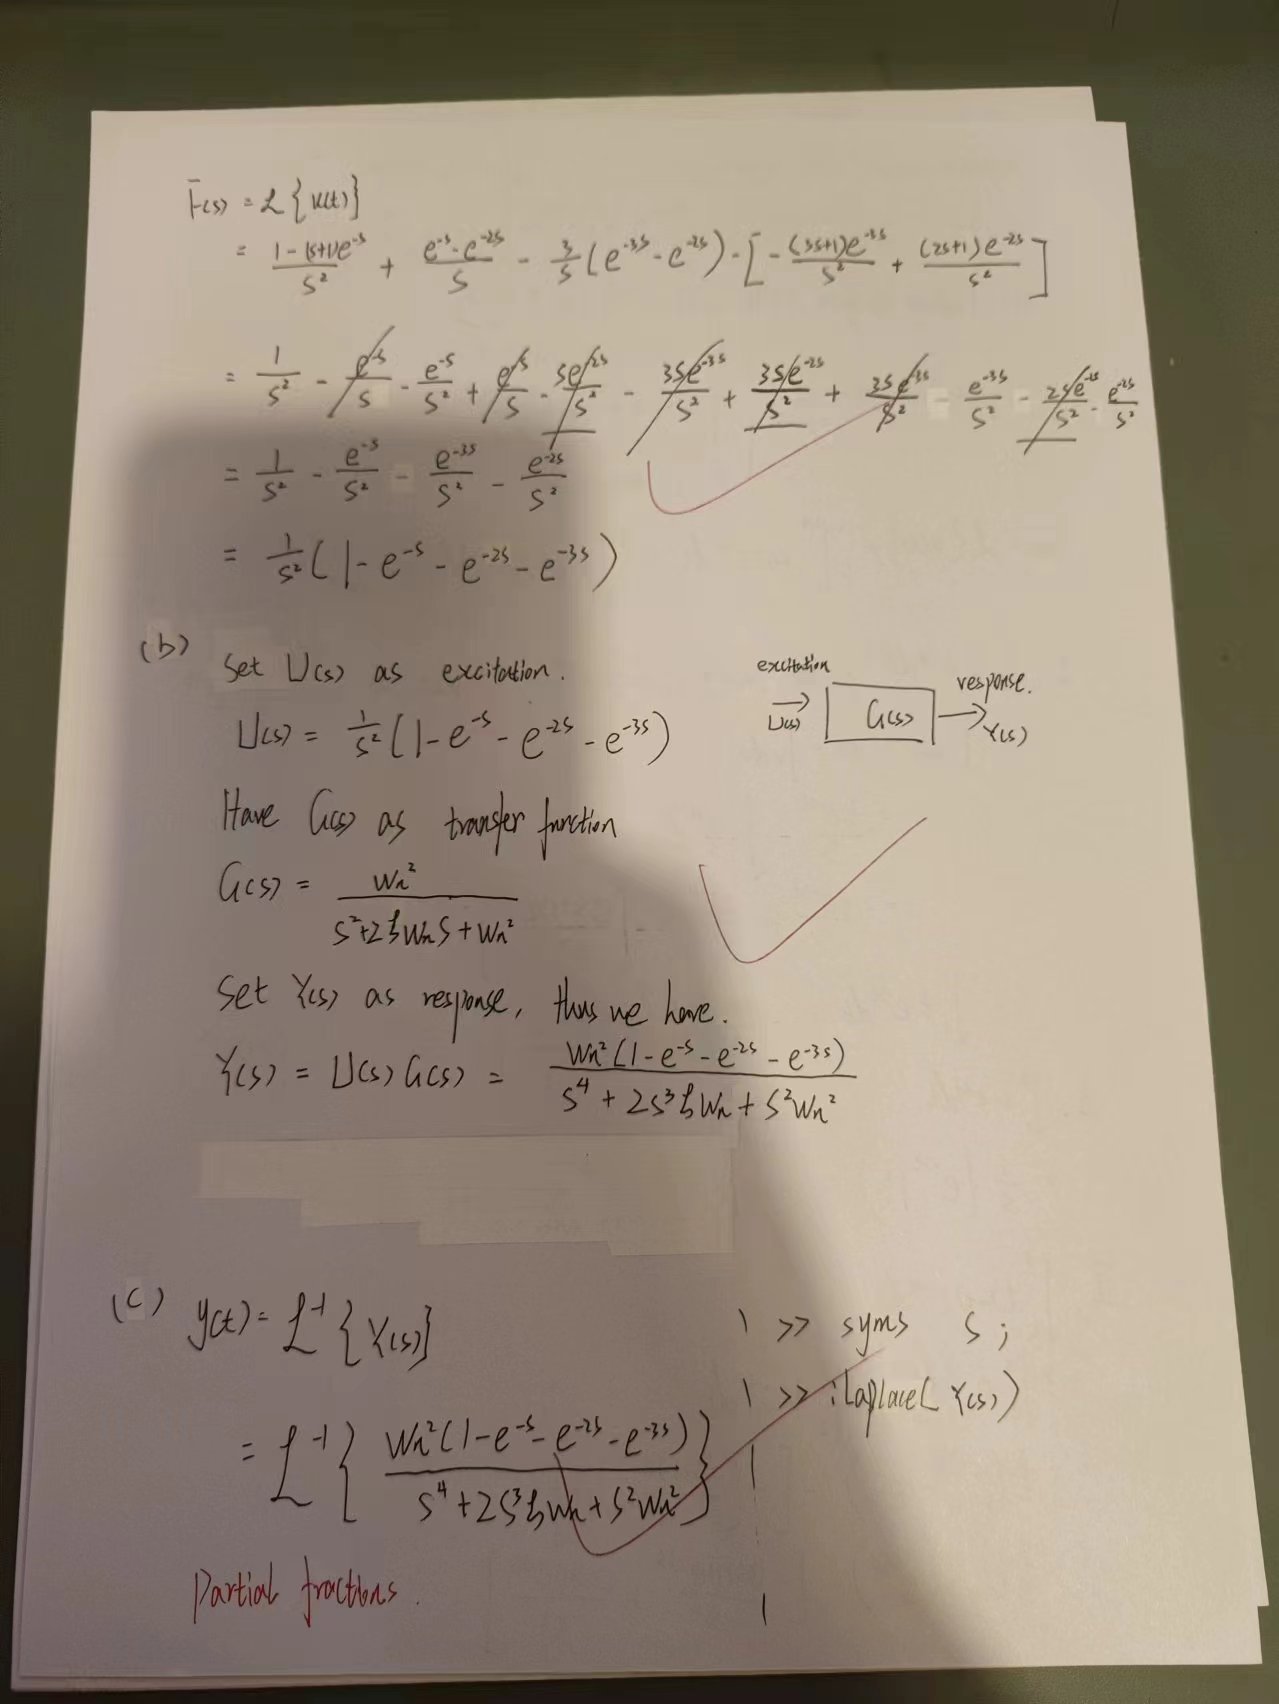 F(s) = ℒ{u(t)}
= (1-(s+1)e^-s)/s² + (e^-s - e^-2s)/s - 3/s (e^-3s - e^-2s) - [-(3s+1)e^-3s/s² + (2s+1)e^-2s/s²]
= 1/s² - e^-s/s - e^-s/s² + e^-s/s - se^-2s/s² - 3se^-3s/s² + 3se^-2s/s² + 3se^-3s/s² - e^-3s/s² - 2se^-2s/s² - e^-2s/s²
= 1/s² - e^-s/s² - e^-3s/s² - e^-2s/s²
= 1/s² (1 - e^-s - e^-2s - e^-3s)
(b) Set U(s) as excitation.
excitation
response.
U(s)
G(s)
Y(s)
U(s) = 1/s² (1 - e^-s - e^-2s - e^-3s)
Have G(s) as transfer function
G(s) = Wn²/(s²+2ζWnS+Wn²)
Set Y(s) as response, thus we have.
Y(s) = U(s)G(s) = Wn²(1 - e^-s - e^-2s - e^-3s)/(s⁴ + 2s³ζWn + s²Wn²)
(c) y(t) = ℒ^-1{Y(s)}
>> syms s;
>> ilaplace(Y(s))
= ℒ^-1{Wn²(1 - e^-s - e^-2s - e^-3s)/(s⁴ + 2s³ζWn + s²Wn²)}
Partial fractions.